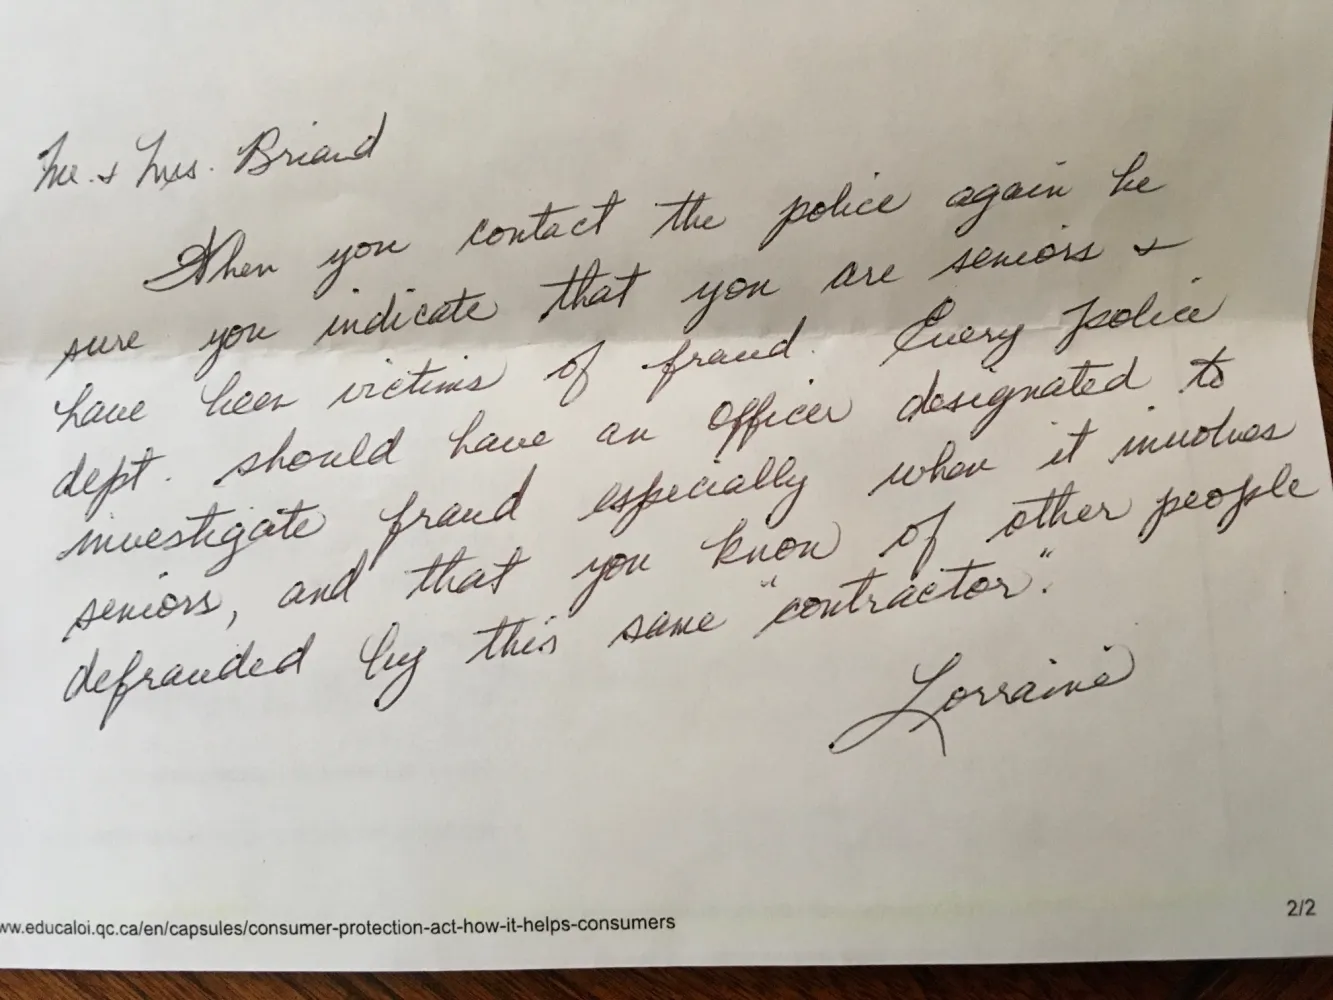 Mr. & Mrs. Briand
When you contact the police again be
sure you indicate that you are seniors &
have been victims of fraud. Every police
dept. should have an officer designated to
investigate fraud especially when it involves
seniors, and that you know of other people
defrauded by this same "contractor".
Lorraine
ww.educaloi.qc.ca/en/capsules/consumer-protection-act-how-it-helps-consumers
2/2